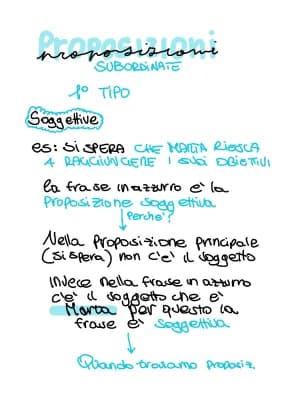 Proposizioni
proposizioni
SUBORDINATE
1° TIPO
Soggettive
es: SI SPERA CHE MARTA RIESCA
A RAGGIUNGERE I SUOI OBIETIVI
la frase in azzurro e' la
Proposizione soggettiva
Perche'?
Nella Proposizione principale
(si spera) non c'e' il soggetto
Invece nella frase in azzurro
c'e' il soggetto che e'
Marta per questo la
frase e' soggettiva
Quando troviamo proposiz.